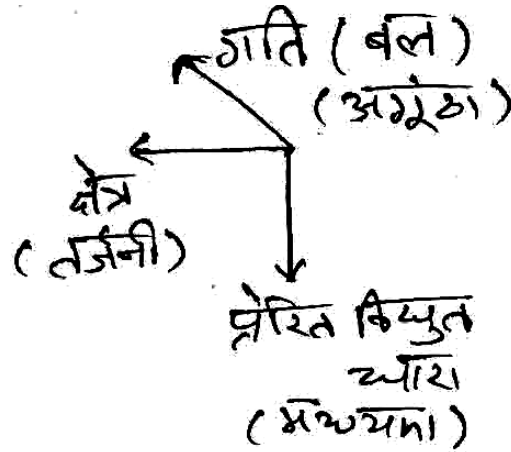 गति (बल)
(अगूंठा)
क्षेत्र
(तर्जनी)
प्रेरित विधुत
धारा
(मध्यमा)